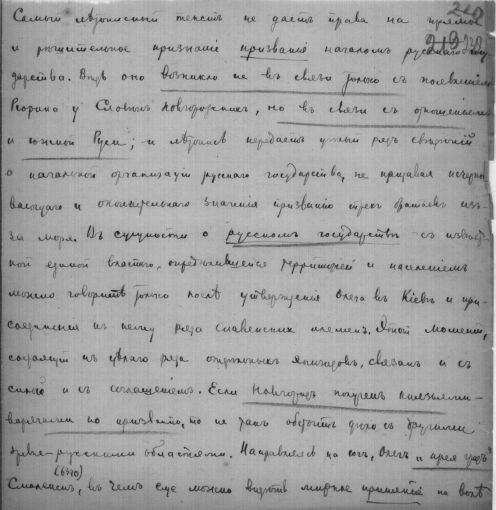 Самый лѣтописный текстъ не даетъ права на прямое
и рѣшительное признаніе призванія началомъ русскаго госу
219
дарства. Вѣдь оно возникло не въ связи только съ появленіемъ
Рюрика у Словенъ Новгородскихъ, но въ связи съ отношеніями
и южной Руси; и лѣтопись передаетъ цѣлый рядъ свѣдѣній
о начальной организаціи русскаго государства, не придавая исчерпы
вающаго и окончательнаго значенія призванію трехъ братьевъ изъ-
за моря. Въ сущности о русскомъ государствѣ съ извѣст-
ной единой властью, опредѣлившейся территоріей и населеніемъ
можно говорить только послѣ утвержденія Олега въ Кіевѣ и при-
соединенія къ нему ряда славянскихъ племенъ. Этотъ моментъ,
состоящій изъ цѣлаго ряда отдѣльныхъ эпизодовъ, связанъ и съ
силою и съ соглашеніемъ. Если Новгородъ полученъ князьями-
варягами по призванію, то не такъ обстоитъ дѣло съ другими
древне-русскими областями. Направляясь на югъ, Олегъ и прея градъ
(6390)
Смоленскъ, въ чемъ еще можно видѣть мирное принятіе на волѣ